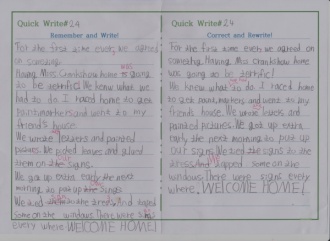 Quick Write#24
Remember and Write!
For the first time ever, we agreed
on something.
Having Miss Crankshaw home is going
to be terrific! We knew what we
had to do I raced home to get
paint, markers and went to my
friend's house.
We wrote letters and painted
pictures. We picked house and glued
them on the signs.
We got up extra early the next
morning to put up the signs.
We tied to the trees. And taped
some on the windows. There were signs
every where WELCOME HOME!
Quick Write#24
Correct and Rewrite!
For the first time ever we agreed on
something. Having Miss. Crankshaw home
was going to be terrific!
We knew what I raced home
to get paint, markers and went to my
friends house. We wrote letters and
painted pictures. We got up extra
early the next morning to put up
our signs. We tied the signs to the
trees. And taped some on the
windows. There were signs every
where. WELCOME HOME!